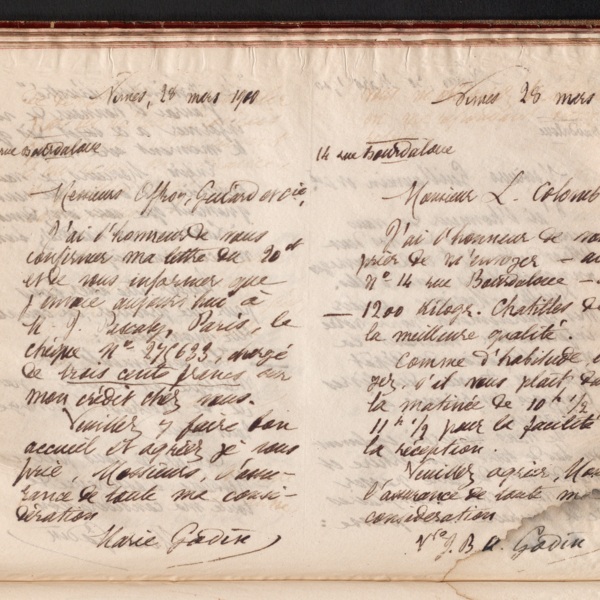 Nimes, 28 mars 1900
rue Bourdaloue
Messieurs Offroy, Guiard et Cie,
J'ai l'honneur de vous
confirmer ma lettre du 20 ct
et de vous informer que
j'envoie aujourd'hui à
Paris, le
chèque N° 275623, chargé
de trois cents francs sur
mon crédit chez vous.
Veuillez y faire bon
accueil et agréer je vous
prie, Messieurs, l'assu-
rance de toute ma consi-
dération
Marie Godin
Nimes 28 mars
14 rue Bourdaloue
Monsieur L. Colomb
J'ai l'honneur de vou
prier de m'envoyer – au
N° 14 rue Bourdaloue –
– 1200 Kilogr. Chatilles de
la meilleure qualité.
Comme d'habitude
ger, s'il vous plaît da
la matinée de 10h 1/2
11h 1/2 pour la facilité
la réception.
Veuillez agréer, Mon
l'assurance de toute m
considération
Vve J. B. A. Godin